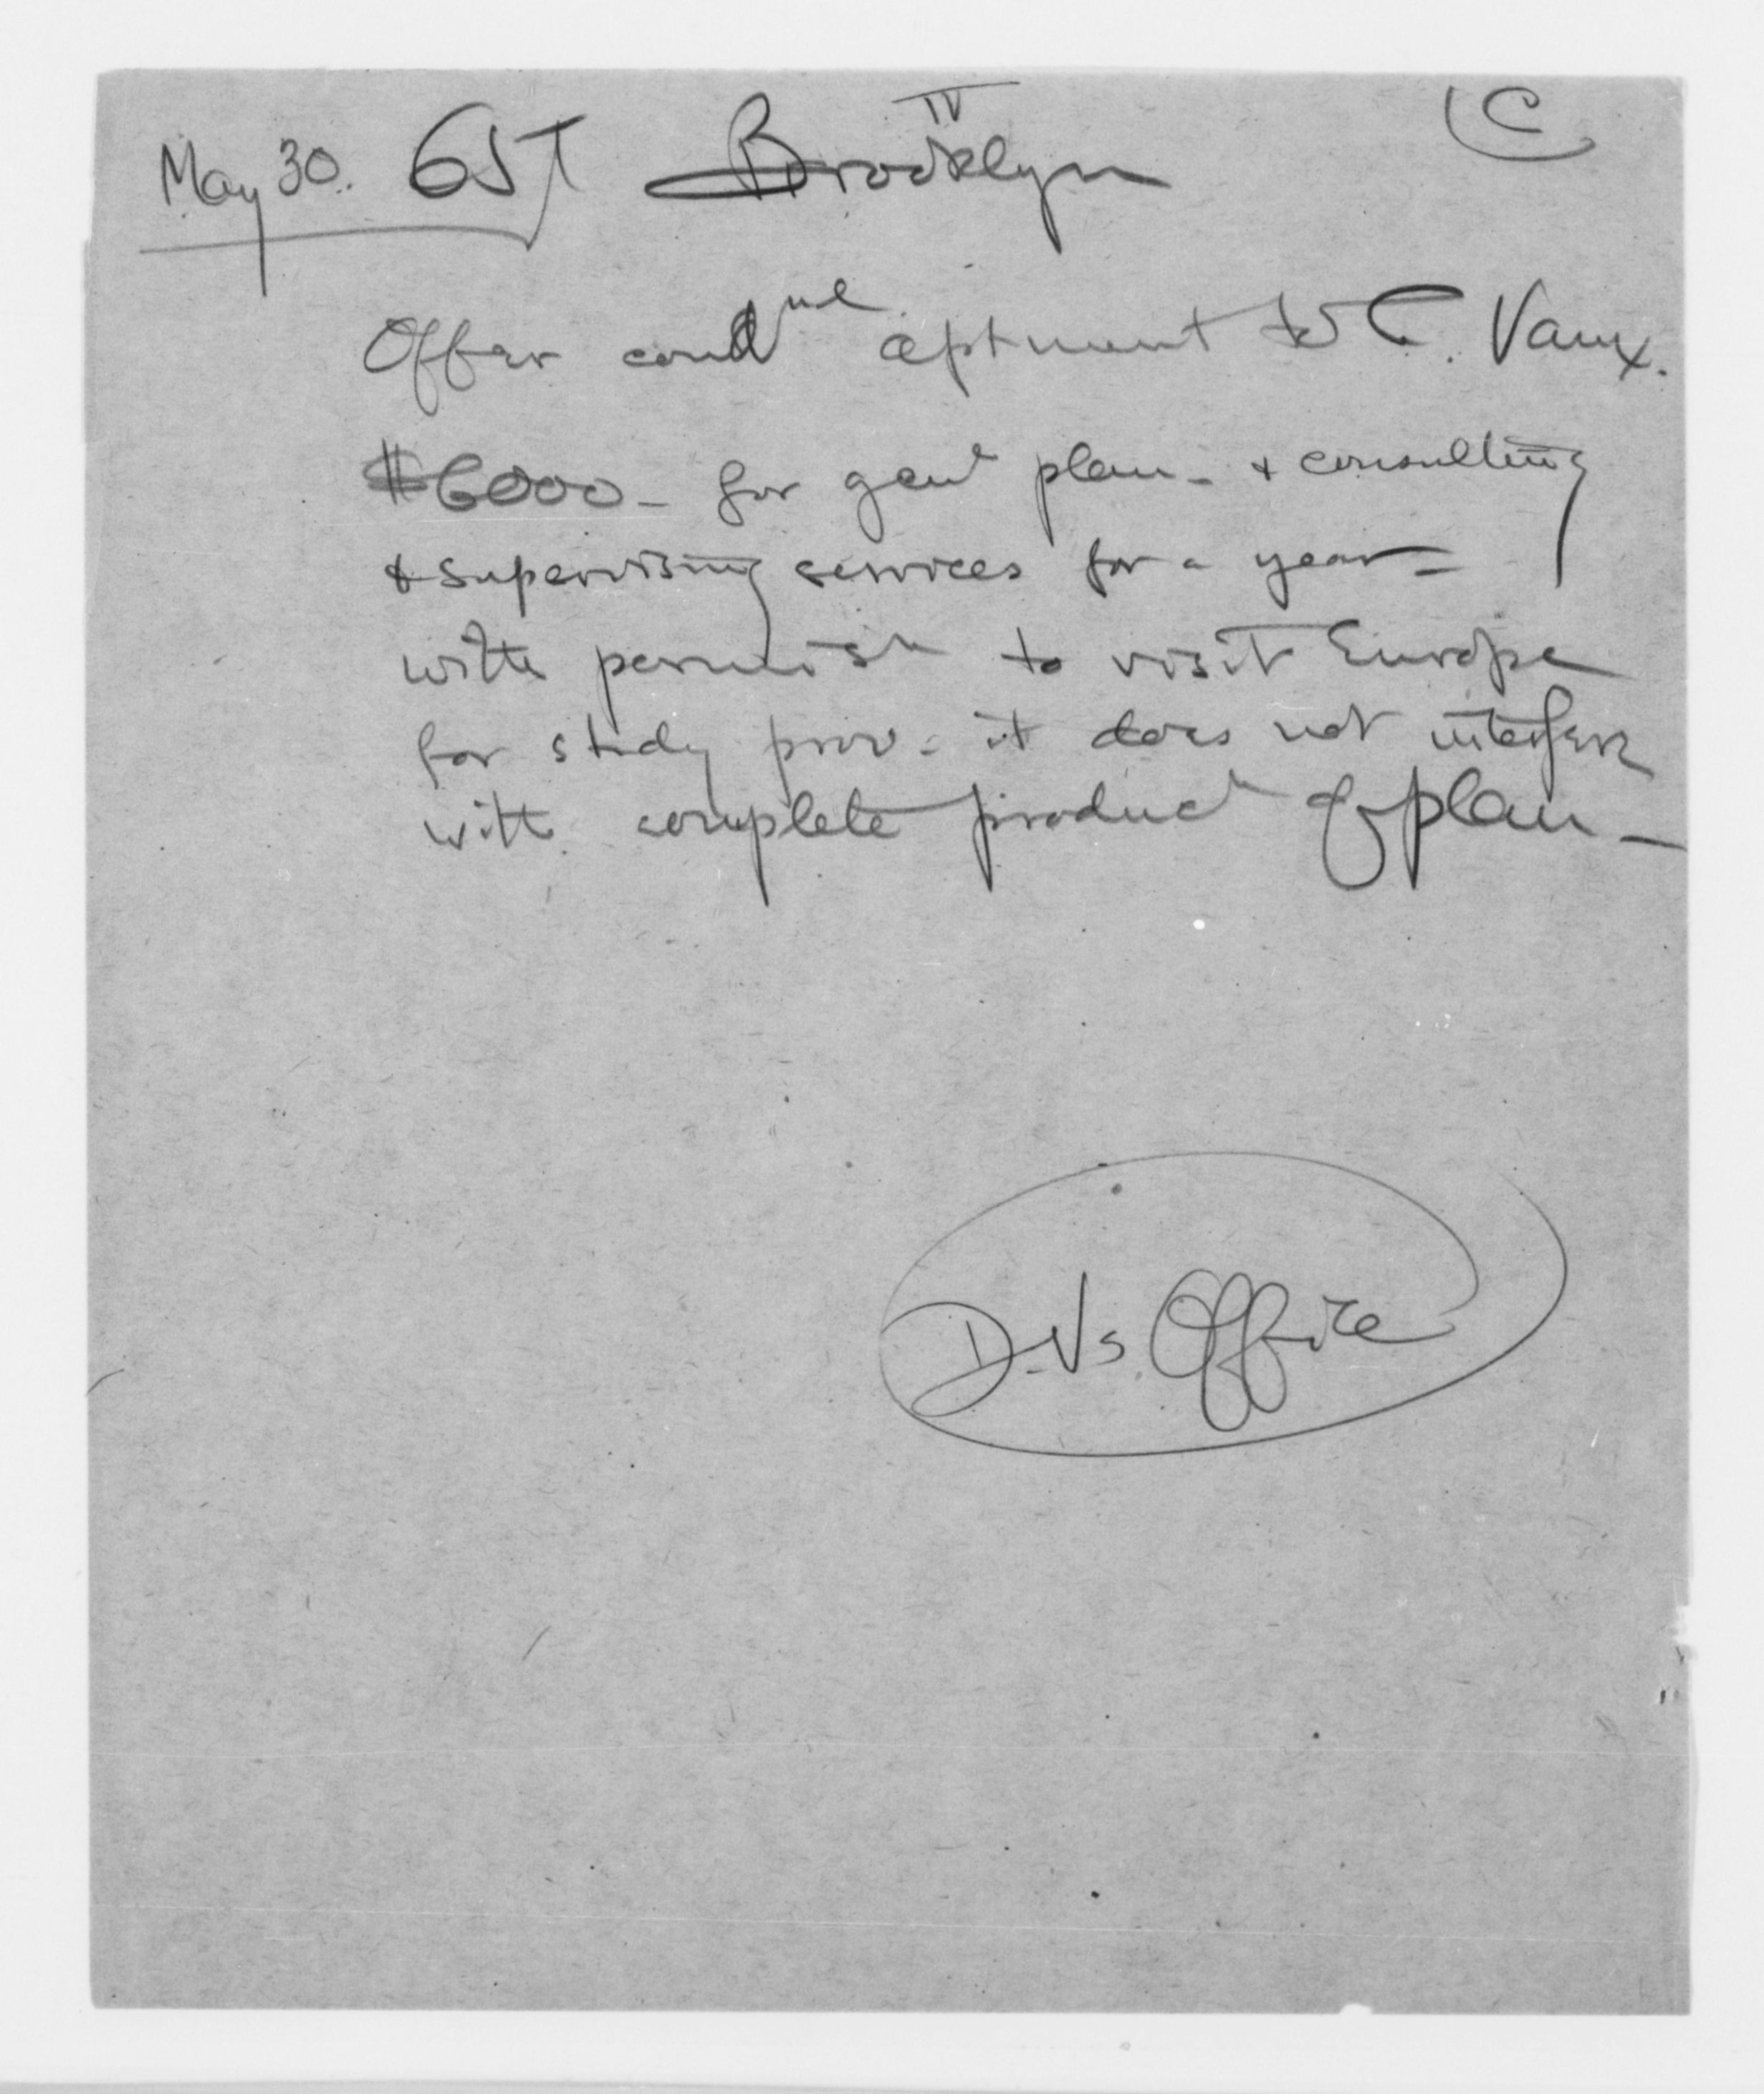 May 30. 65 Brooklyn IV C
Offer cond^nl aptment to C. Vaux.
$6000 - for genl plan - & consulting
& supervising services for a year -
with permissn to visit Europe
for study prov. it does not interfere
with complete productn of plan -
D. Vs. Office